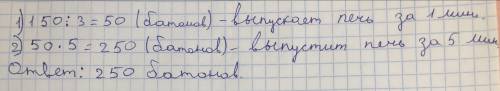 1) 150 : 3 = 50 (батонов) - выпускает печь за 1 мин.
2) 50 · 5 = 250 (батонов) - выпустит печь за 5 мин
Ответ: 250 батонов.